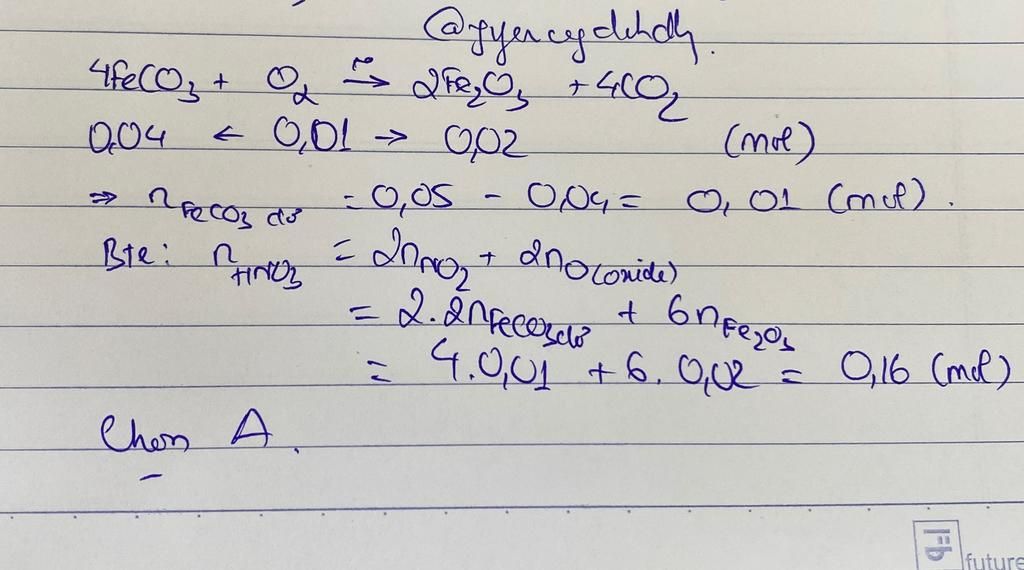 4FeCO3 + O2 →t° 2Fe2O3 + 4CO2
0,04 ← 0,01 → 0,02 (mol)
⇒ nFeCO3 dư = 0,05 - 0,04 = 0,01 (mol).
Bte: nHNO3 = 2nNO2 + 2nO(oxide)
= 2.2nFeCO3dư + 6nFe2O3
= 4.0,01 + 6.0,02 = 0,16 (mol)
Chọn A.
future